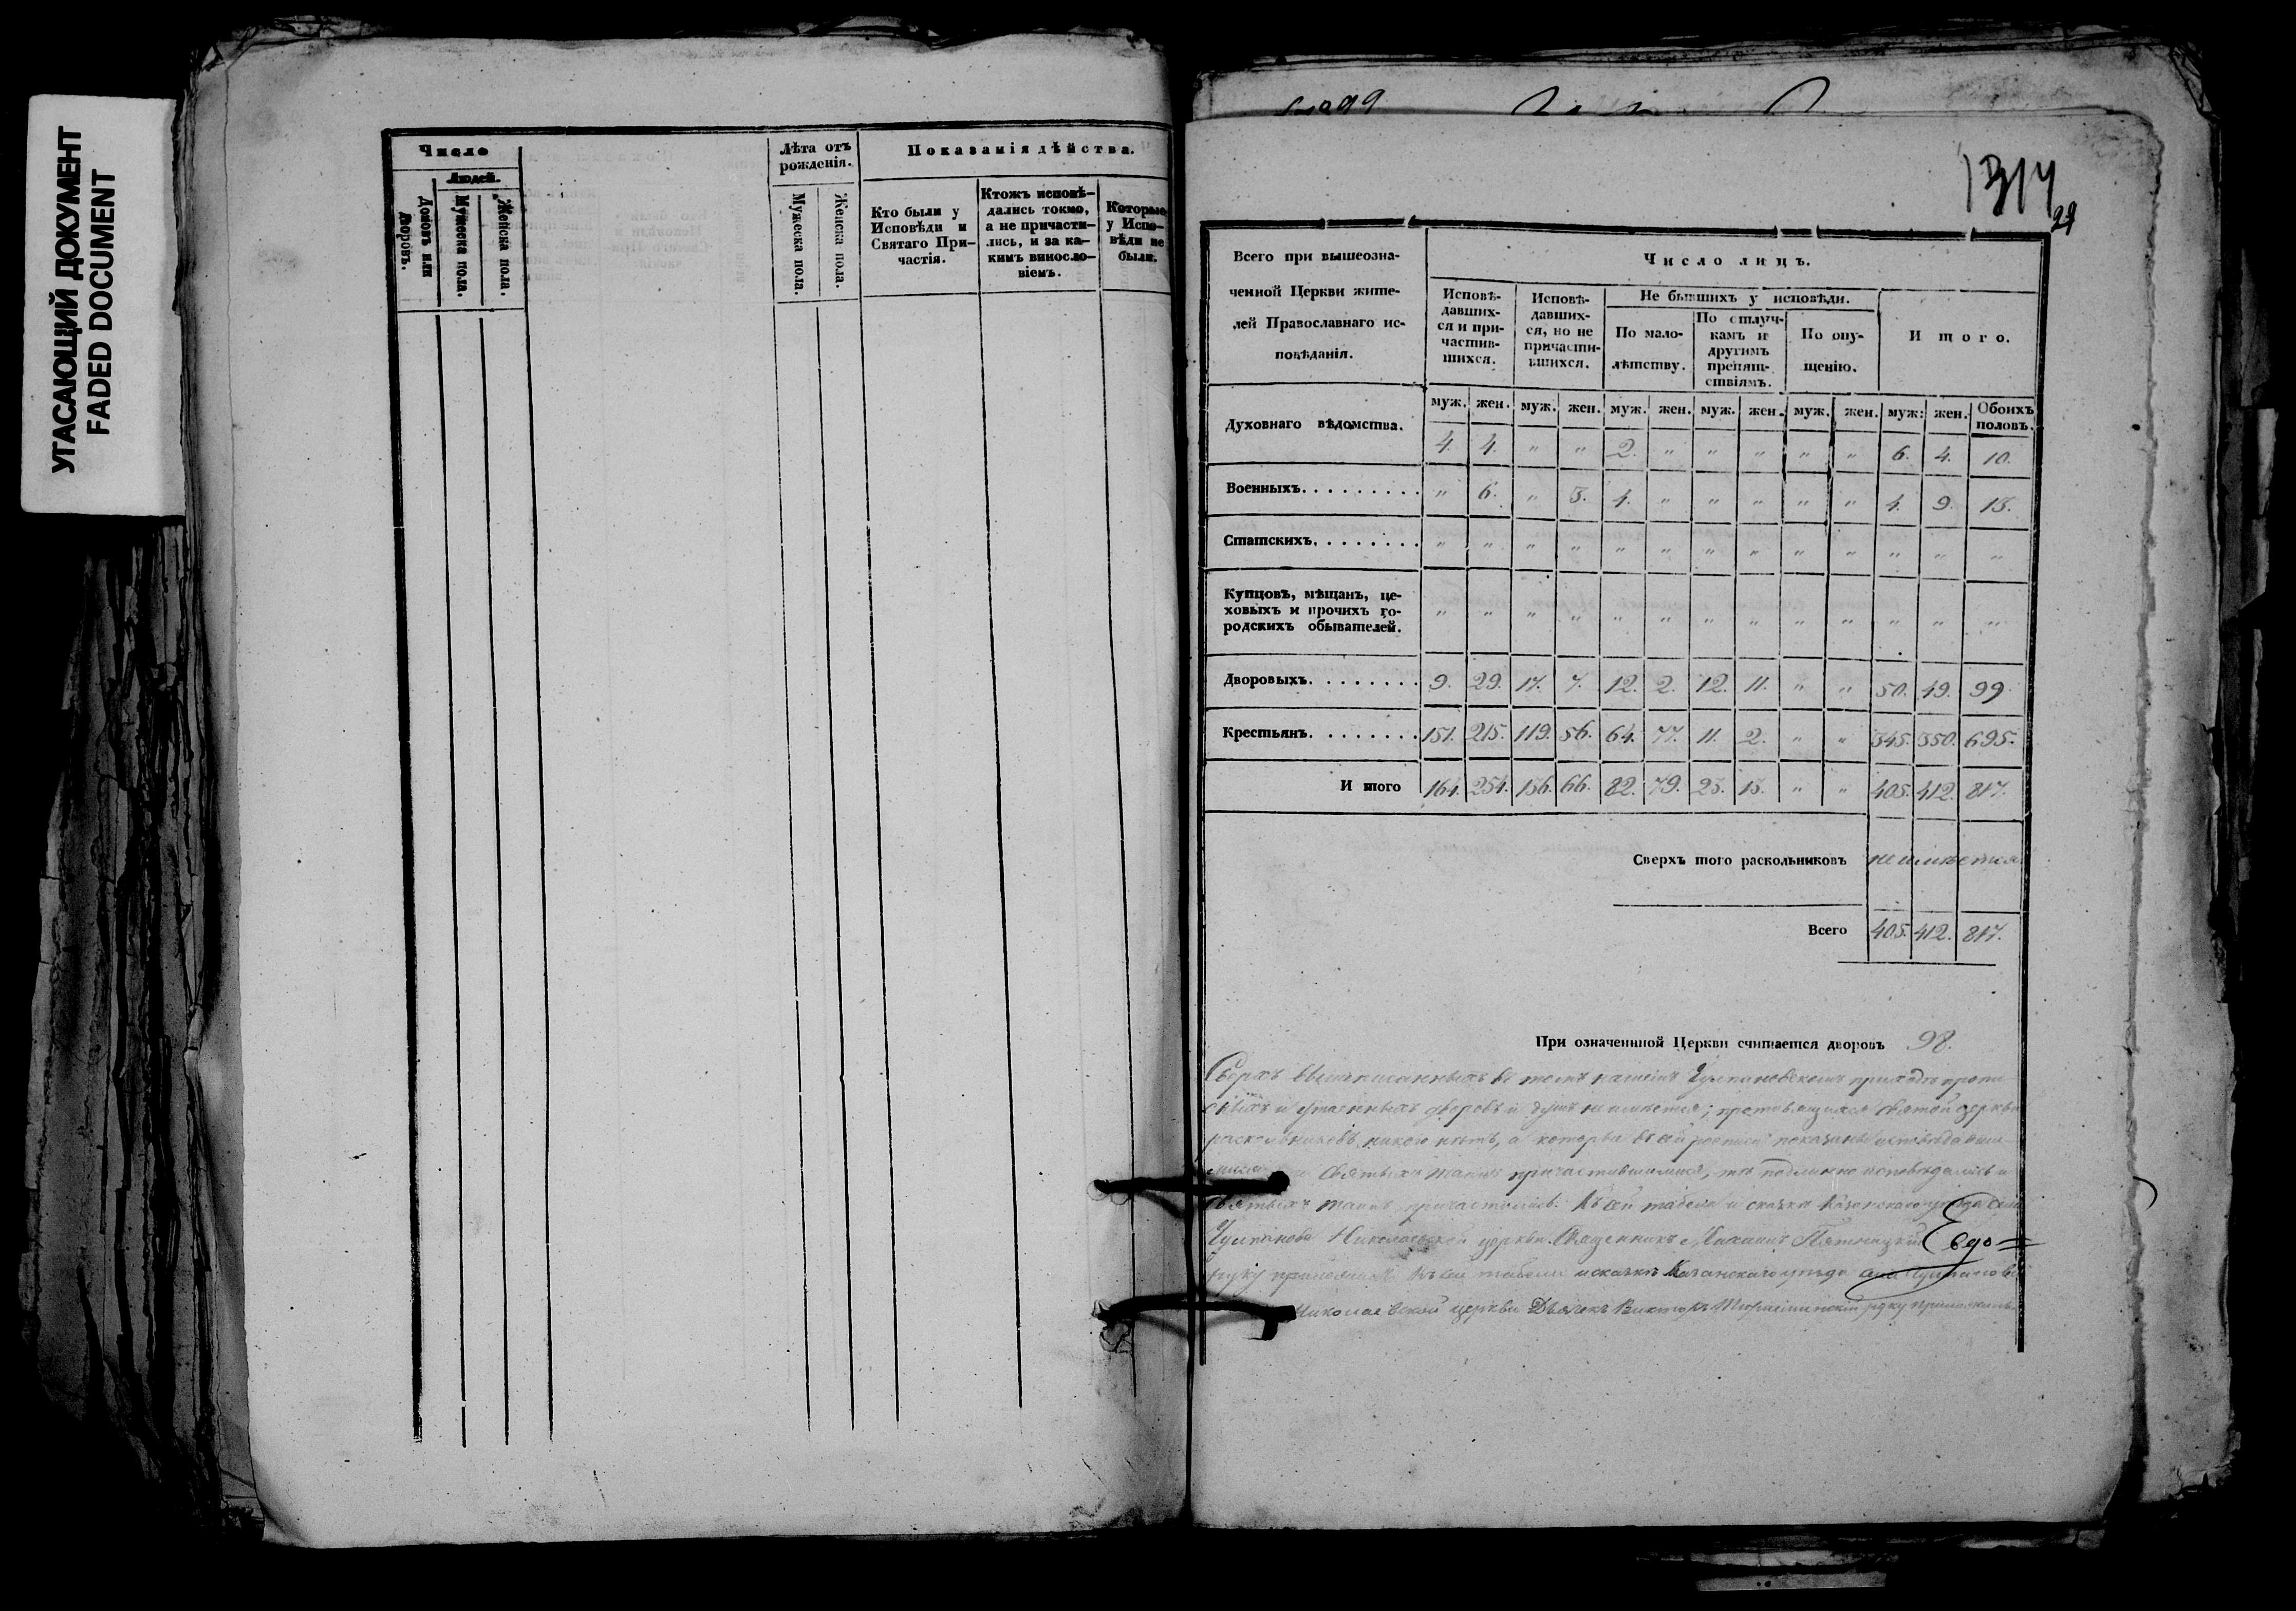 УГАСАЮЩИЙ ДОКУМЕНТ
FADED DOCUMENT
Число
Людей.
Домовъ или Дворовъ.
Мужеска пола.
Женска пола.
Лѣта отъ рожденія.
Мужеска пола.
Женска пола.
Показанія дѣйства.
Кто были у Исповѣди и Святаго Причастія.
Ктожъ исповѣ-
дались токмо,
а не причасти-
лись, и за ка-
кимъ винословіемъ.
Которые у Исповѣди не были.
1314
Всего при вышеозна-
ченной Церкви жите-
лей Православнаго ис-
повѣданія.
Число лицъ.
Исповѣ-
давших-
ся и при-
частив-
шихся.
Исповѣ-
давших-
ся, но не
причасти-
вшихся.
Не бывшихъ у исповѣди.
По мало-
лѣтству.
По отлуч-
камъ и
другимъ
препят-
ствіямъ.
По опу-
щенію.
Итого.
муж. жен. муж. жен. муж. жен. муж. жен. муж. жен. муж: жен. Обоихъ половъ.
Духовнаго вѣдомства. 4. 4. " " 2. " " " " " 6. 4. 10.
Военныхъ. . . . . . . . . " 6. " 3. 4. " " " " " 4. 9. 13.
Статскихъ. . . . . . . . " " " " " " " " " " " " "
Купцовъ, мѣщанъ, це-
ховыхъ и прочихъ го-
родскихъ обывателей. " " " " " " " " " " " " "
Дворовыхъ. . . . . . . . 9. 29. 17. 7. 12. 2. 12. 11. " " 50. 49. 99
Крестьянъ. . . . . . . . 151. 215. 119. 56. 64. 77. 11. 2. " " 345. 350. 695.
И того 164. 254. 136. 66. 82. 79. 23. 13. " " 405. 412. 817.
Сверхъ того раскольниковъ не имѣется
Всего 405. 412. 817.
При означенной Церкви считается дворовъ 98.
Сверхъ вышеписанныхъ въ томъ нашемъ приходѣ
и утаенныхъ дворовъ и душъ не имѣется; святой церкви
раскольниковъ никого нѣтъ, а которые въ сей росписи показаны
Святыхъ таинъ причастившимися, тѣ подлинно исповѣдались и
Святыхъ таинъ причастились. Къ сей табели и сказкѣ Казанскаго уѣзда села
Николаевской церкви Священникъ Михаилъ Пятницкій
руку приложилъ. Къ сей табели и сказкѣ Казанскаго уѣзда села
Николаевской церкви Дьячекъ Викторъ руку приложилъ